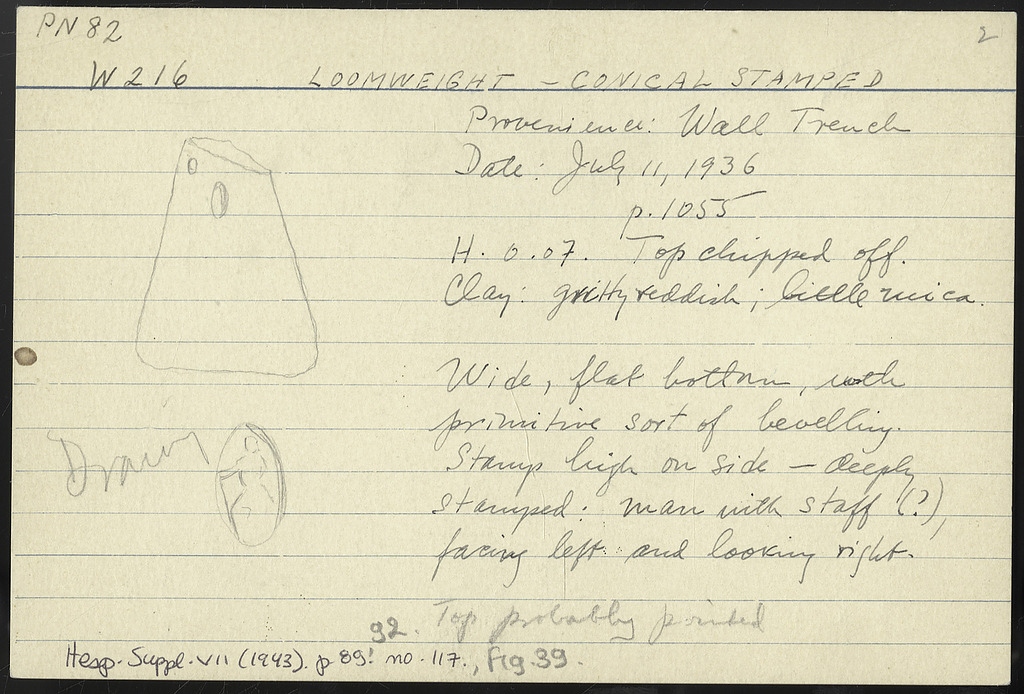 PN 82
2
W 216 LOOMWEIGHT - CONICAL STAMPED
Provenience: Wall Trench
Date: July 11, 1936
p. 1055
H. 0.07. Top chipped off.
Clay: gritty reddish; little mica.
Wide, flat bottom, with
primitive sort of bevelling.
Stamp high on side — deeply
Drawn
stamped: man with staff (?),
facing left and looking right.
Top probably pointed
92.
Hesp. Suppl. VII (1943). p 89! no. 117., fig. 39.